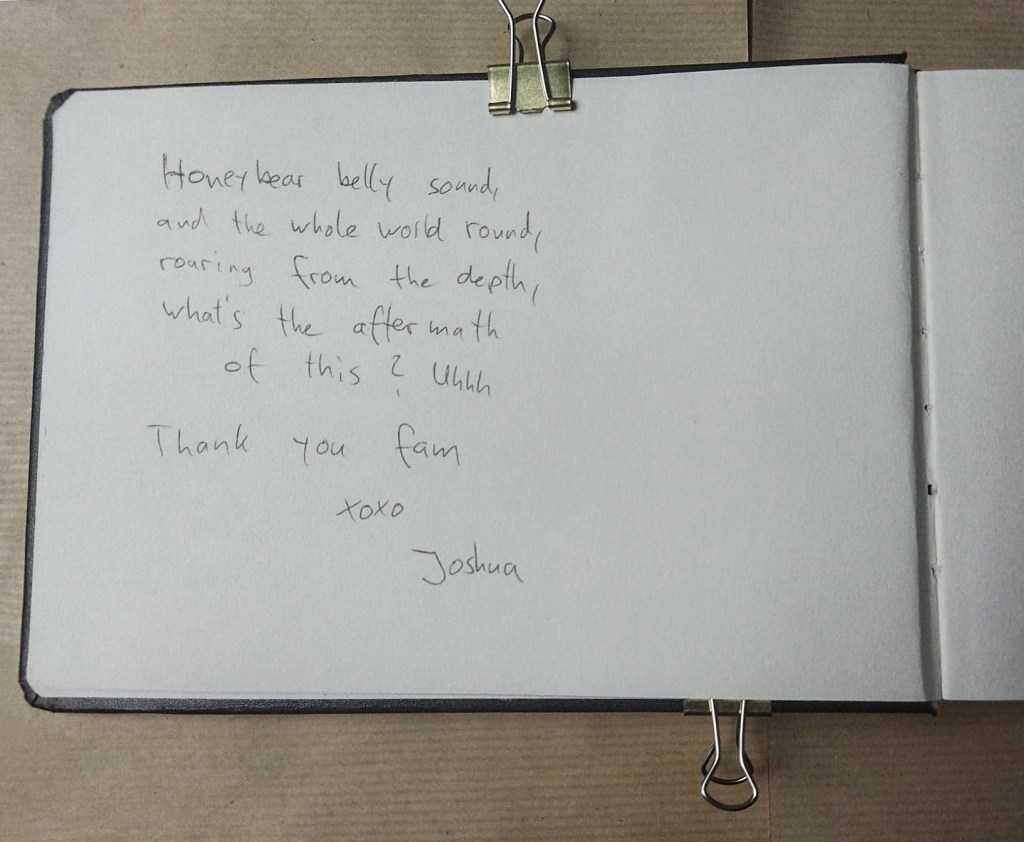 Honeybear belly sound,
and the whole world round,
roaring from the depth,
what's the aftermath
of this? Uhhh
Thank you fam
xoxo
Joshua